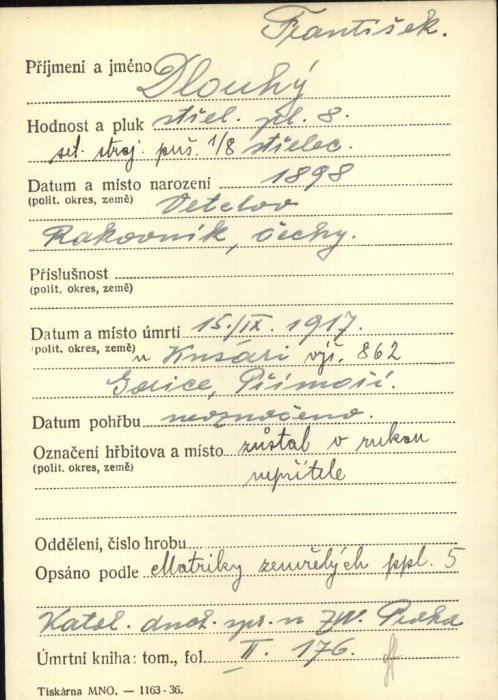 František.
Příjmení a jméno Dlouhý
Hodnost a pluk střel. pl. 8.
set. stroj. puš. 1/8 střelec.
Datum a místo narození 1898
(polit. okres, země) Vetelov
Rakovník, Čechy.
Příslušnost
(polit. okres, země)
Datum a místo úmrtí 15./IX. 1917.
(polit. okres, země) u Kusári výš. 862
Gorice, Přímoří.
Datum pohřbu neoznačeno.
Označení hřbitova a místo zůstal v rukou
(polit. okres, země) nepřítele
Oddělení, číslo hrobu
Opsáno podle Matriky zemřelých ppl. 5
Katol. duch. spr. u ZVV. Praha
Úmrtní kniha: tom., fol. II. 176.
Tiskárna MNO. — 1163-36.